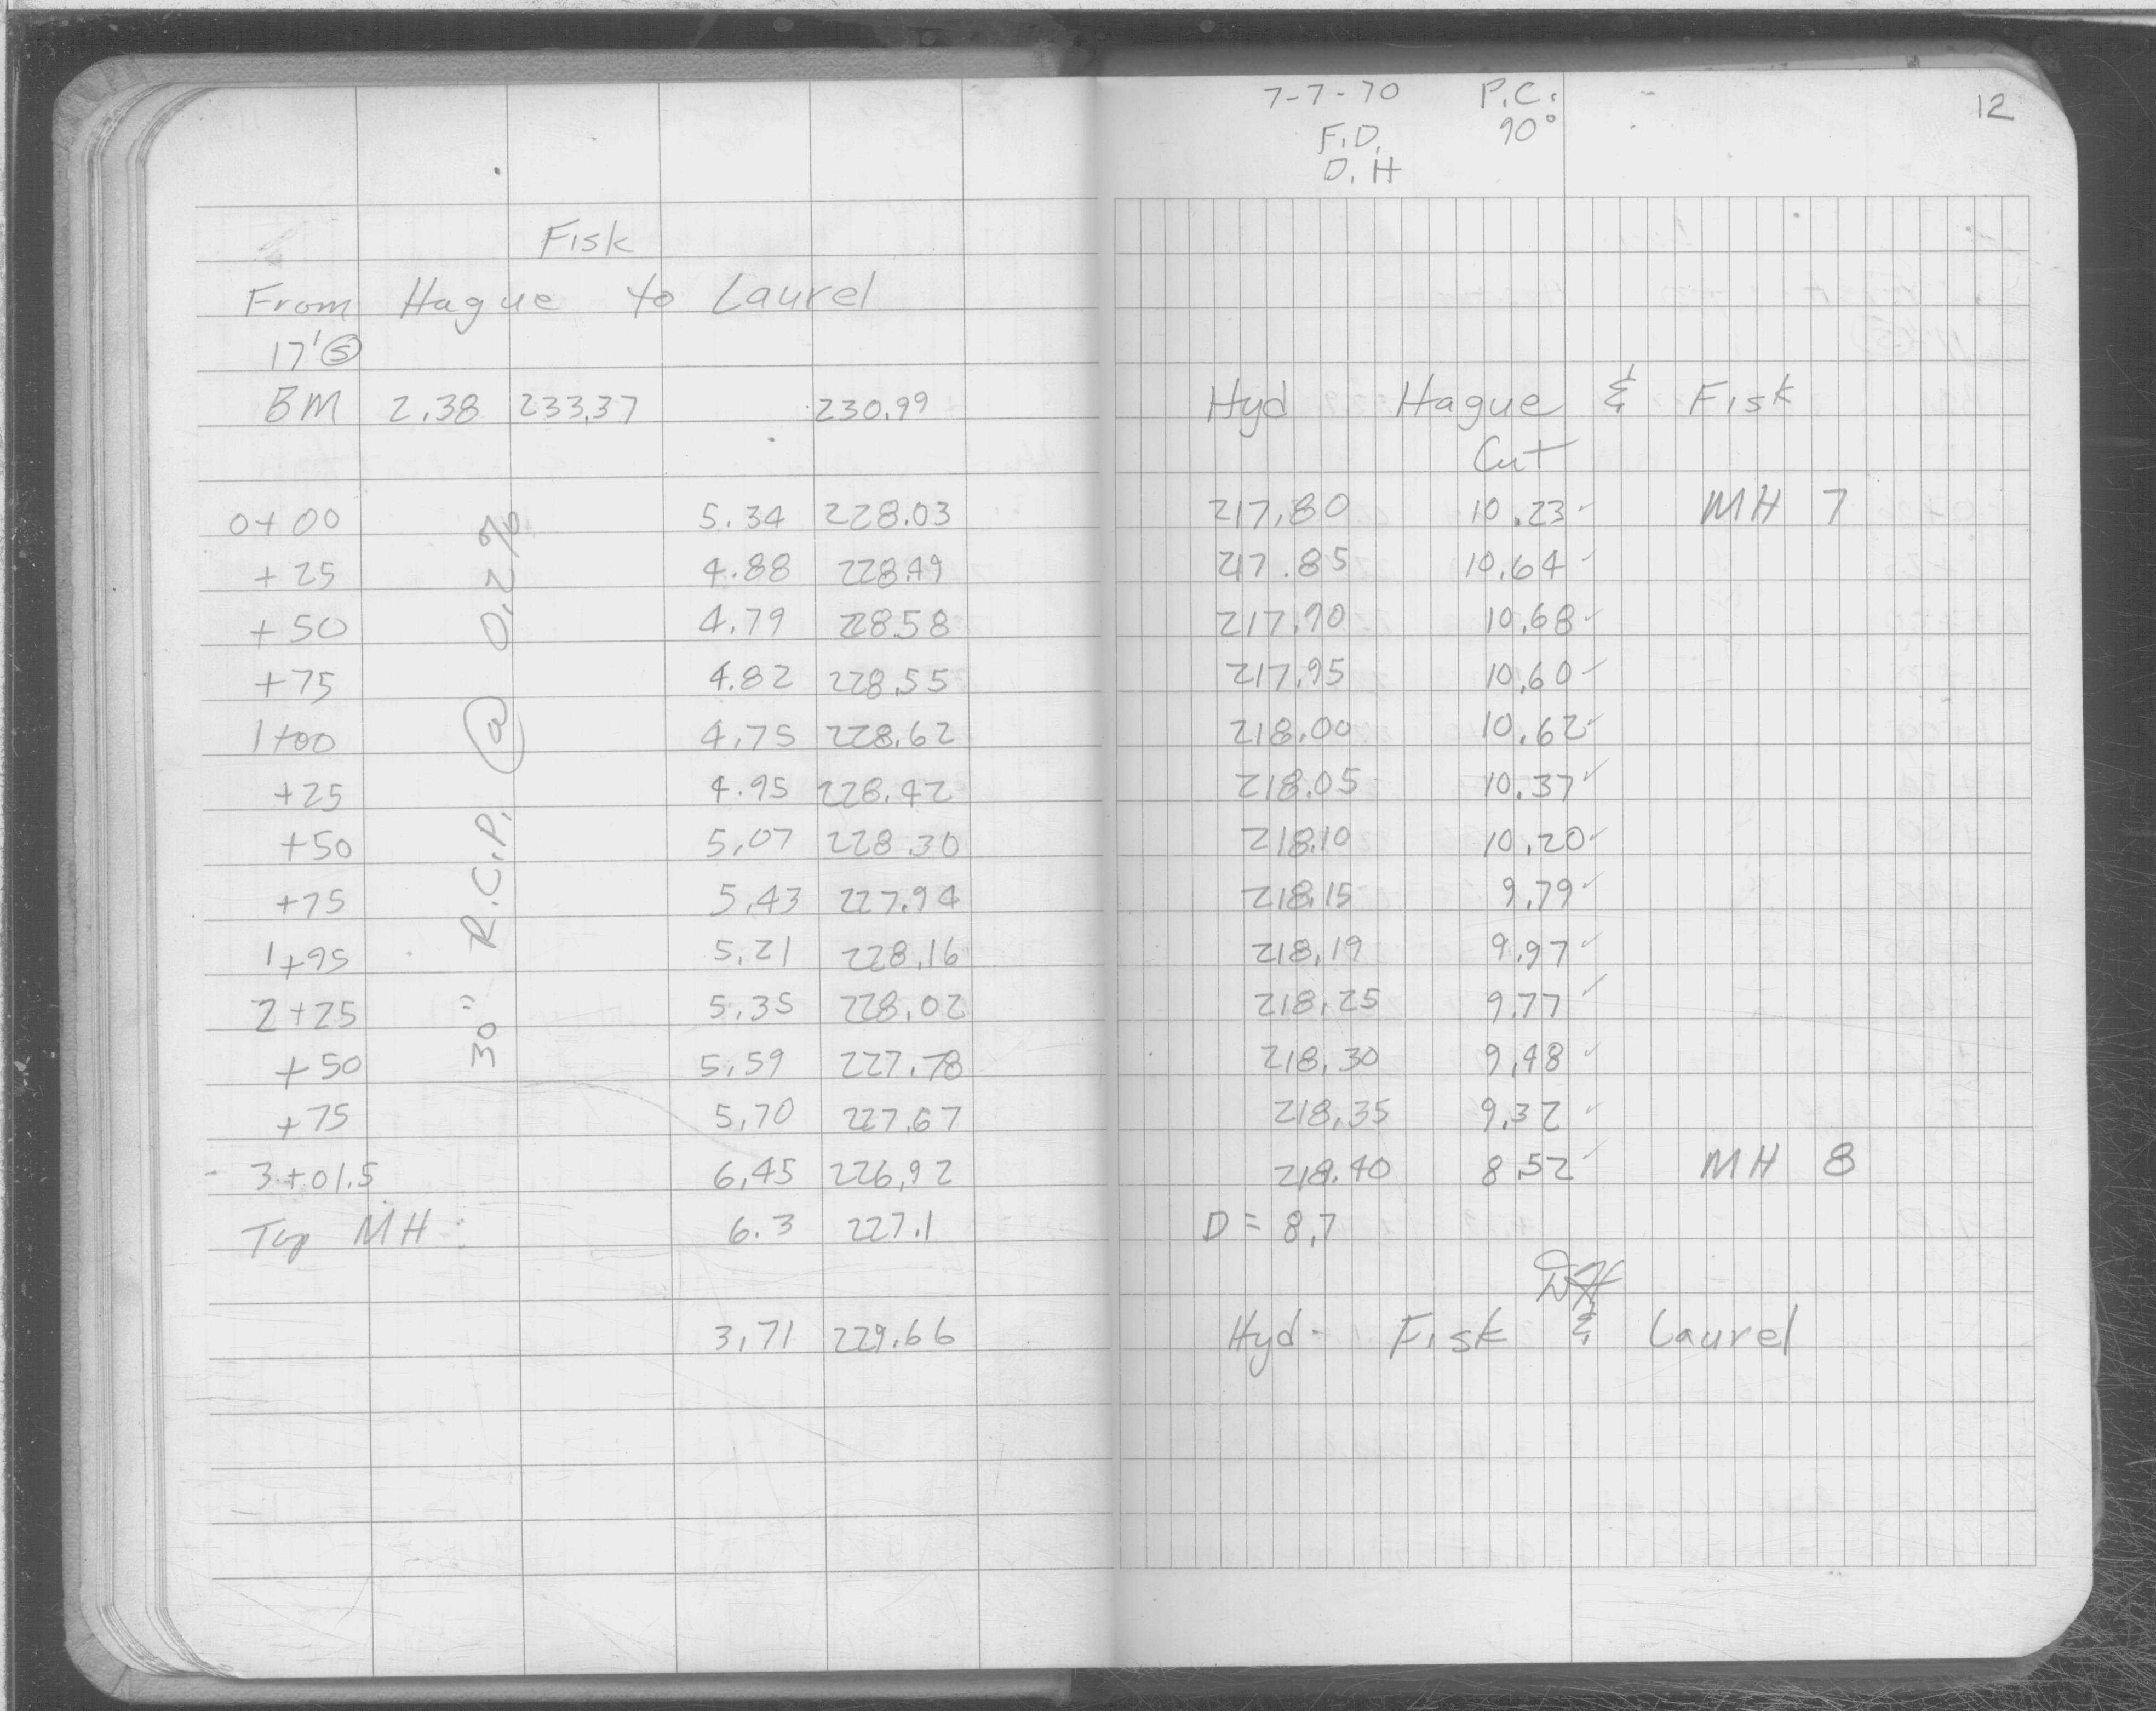 7-7-70 P.C. 12
F.D. 90°
D.H
Fisk
From Hague to Laurel
17' Ⓢ
BM 2.38 233.37 230.99 Hyd Hague & Fisk
Cut
0+00 5.34 228.03 217.80 10.23 ✓ MH 7
+25 4.88 228.49 217.85 10.64 ✓
+50 4.79 228.58 217.90 10.68 ✓
+75 4.82 228.55 217.95 10.60 ✓
1+00 4.75 228.62 218.00 10.62 ✓
+25 4.95 228.42 218.05 10.37 ✓
+50 5.07 228.30 218.10 10.20 ✓
+75 5.43 227.94 218.15 9.79 ✓
1+95 5.21 228.16 218.19 9.97 ✓
2+25 5.35 228.02 218.25 9.77 ✓
+50 5.59 227.78 218.30 9.48 ✓
+75 5.70 227.67 218.35 9.32 ✓
3+01.5 6.45 226.92 218.40 8.52 ✓ MH 8
Top MH: 6.3 227.1 D = 8.7
3.71 229.66 Hyd. Fisk & Laurel
30" R.C.P. @ 0.2%